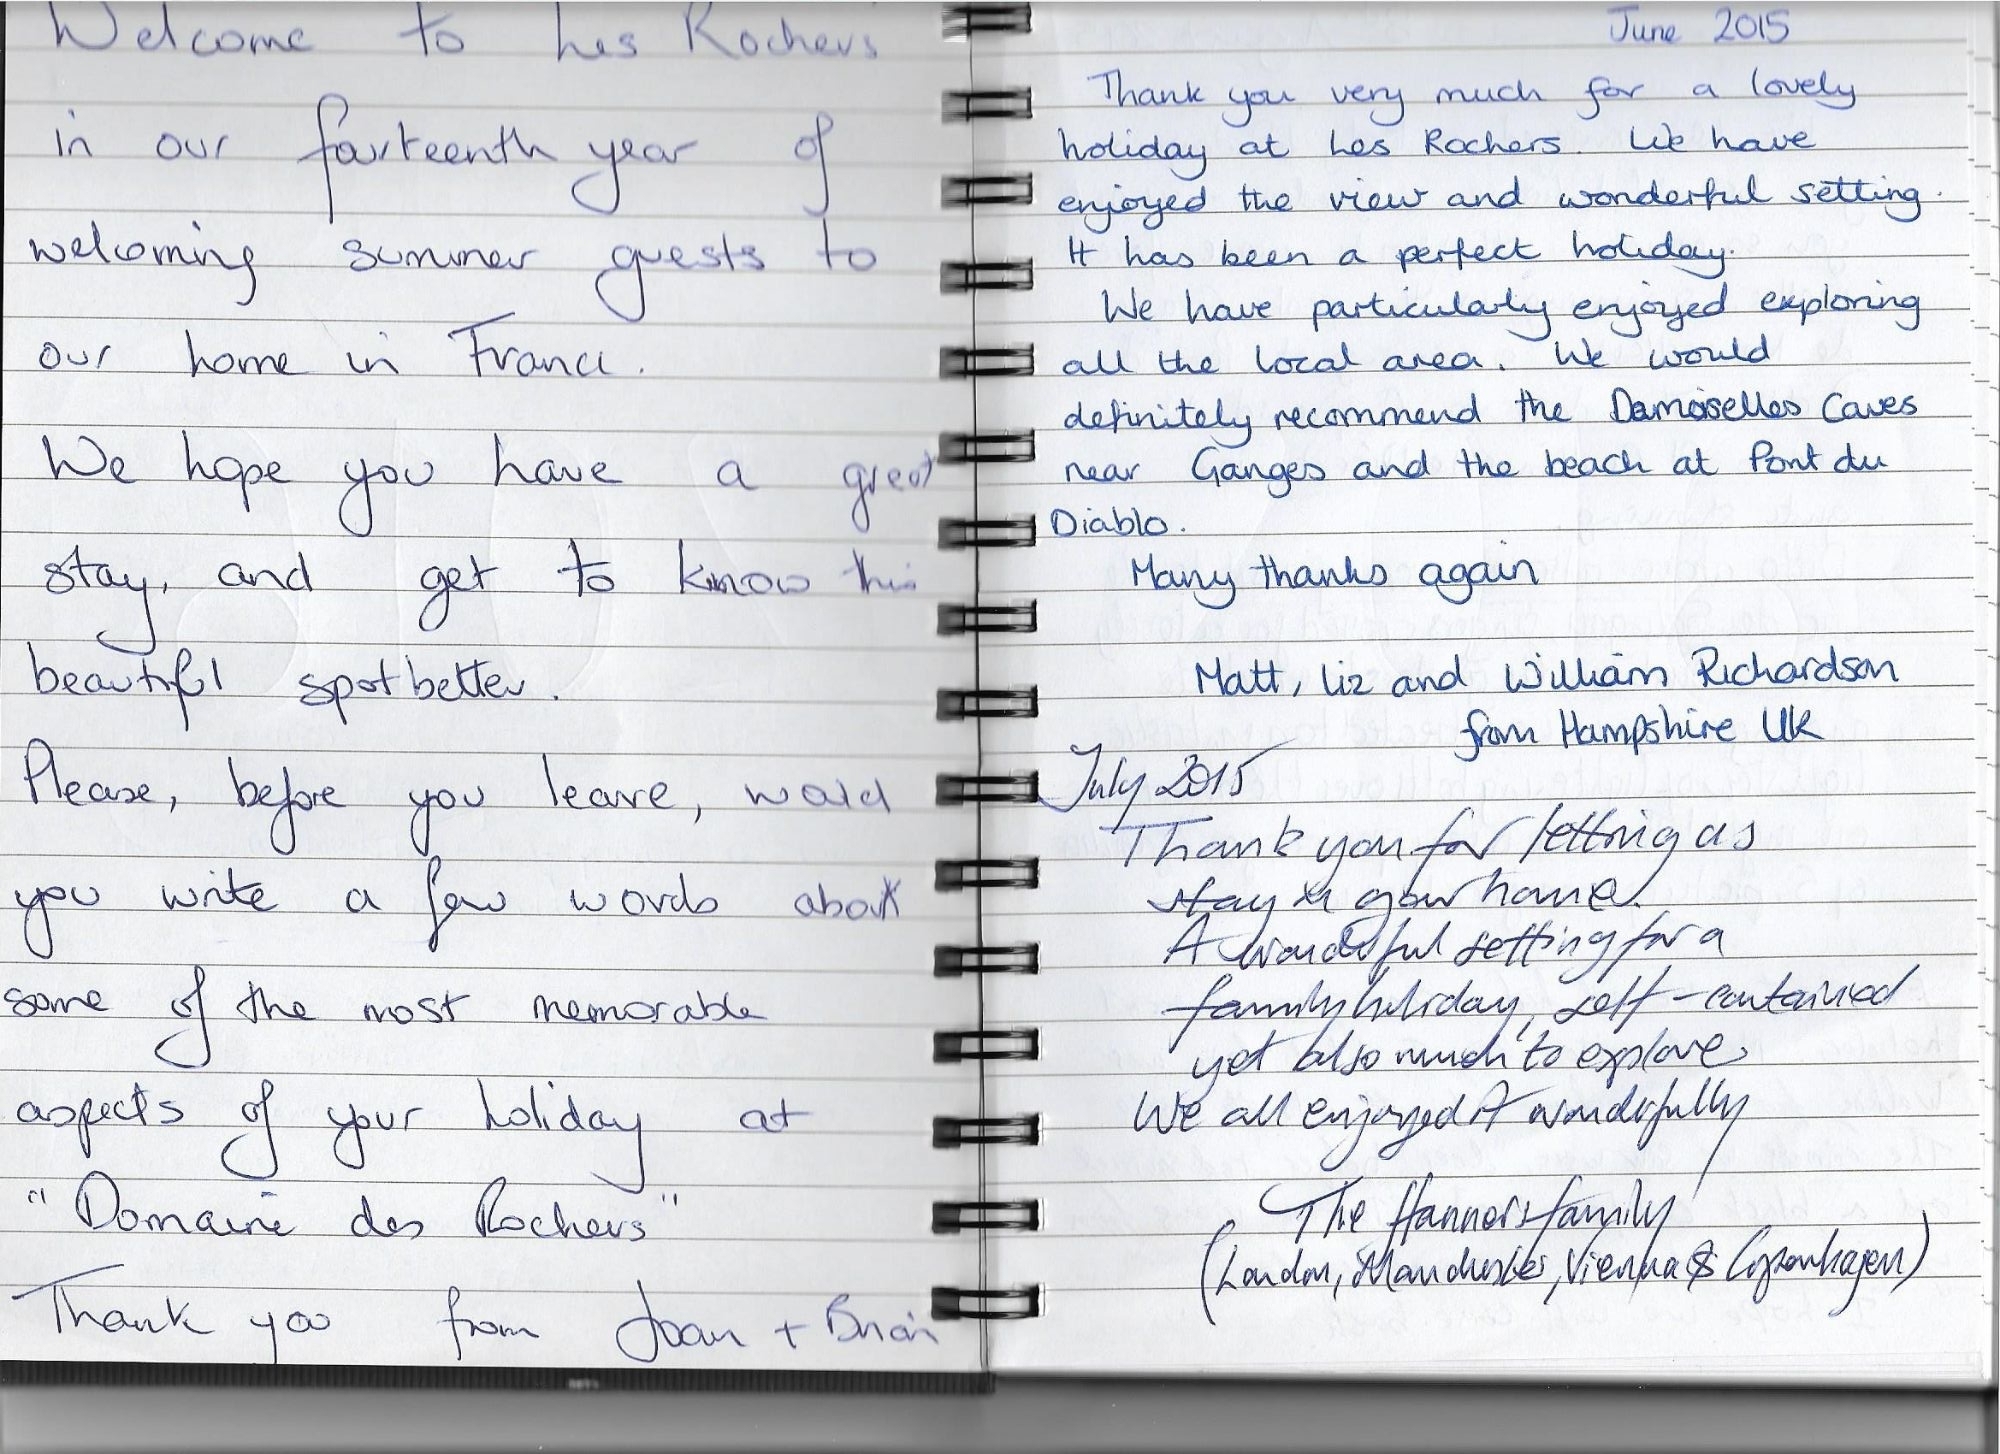 Welcome to Les Rochers
in our fourteenth year of
welcoming summer guests to
our home in France.
We hope you have a great
stay, and get to know this
beautiful spot better.
Please, before you leave, would
you write a few words about
some of the most memorable
aspects of your holiday at
"Domaine des Rochers"
Thank you from Joan + Brian
June 2015
Thank you very much for a lovely
holiday at Les Rochers. We have
enjoyed the view and wonderful setting.
It has been a perfect holiday.
We have particularly enjoyed exploring
all the local area. We would
definitely recommend the Damoiselles Caves
near Ganges and the beach at Pont du
Diablo.
Many thanks again
Matt, Liz and William Richardson
from Hampshire UK
July 2015
Thank you for letting us
stay in your home.
A wonderful setting for a
family holiday, self-contained
yet also much to explore.
We all enjoyed it wonderfully
The family
(London, Manchester, Vienna & Copenhagen)